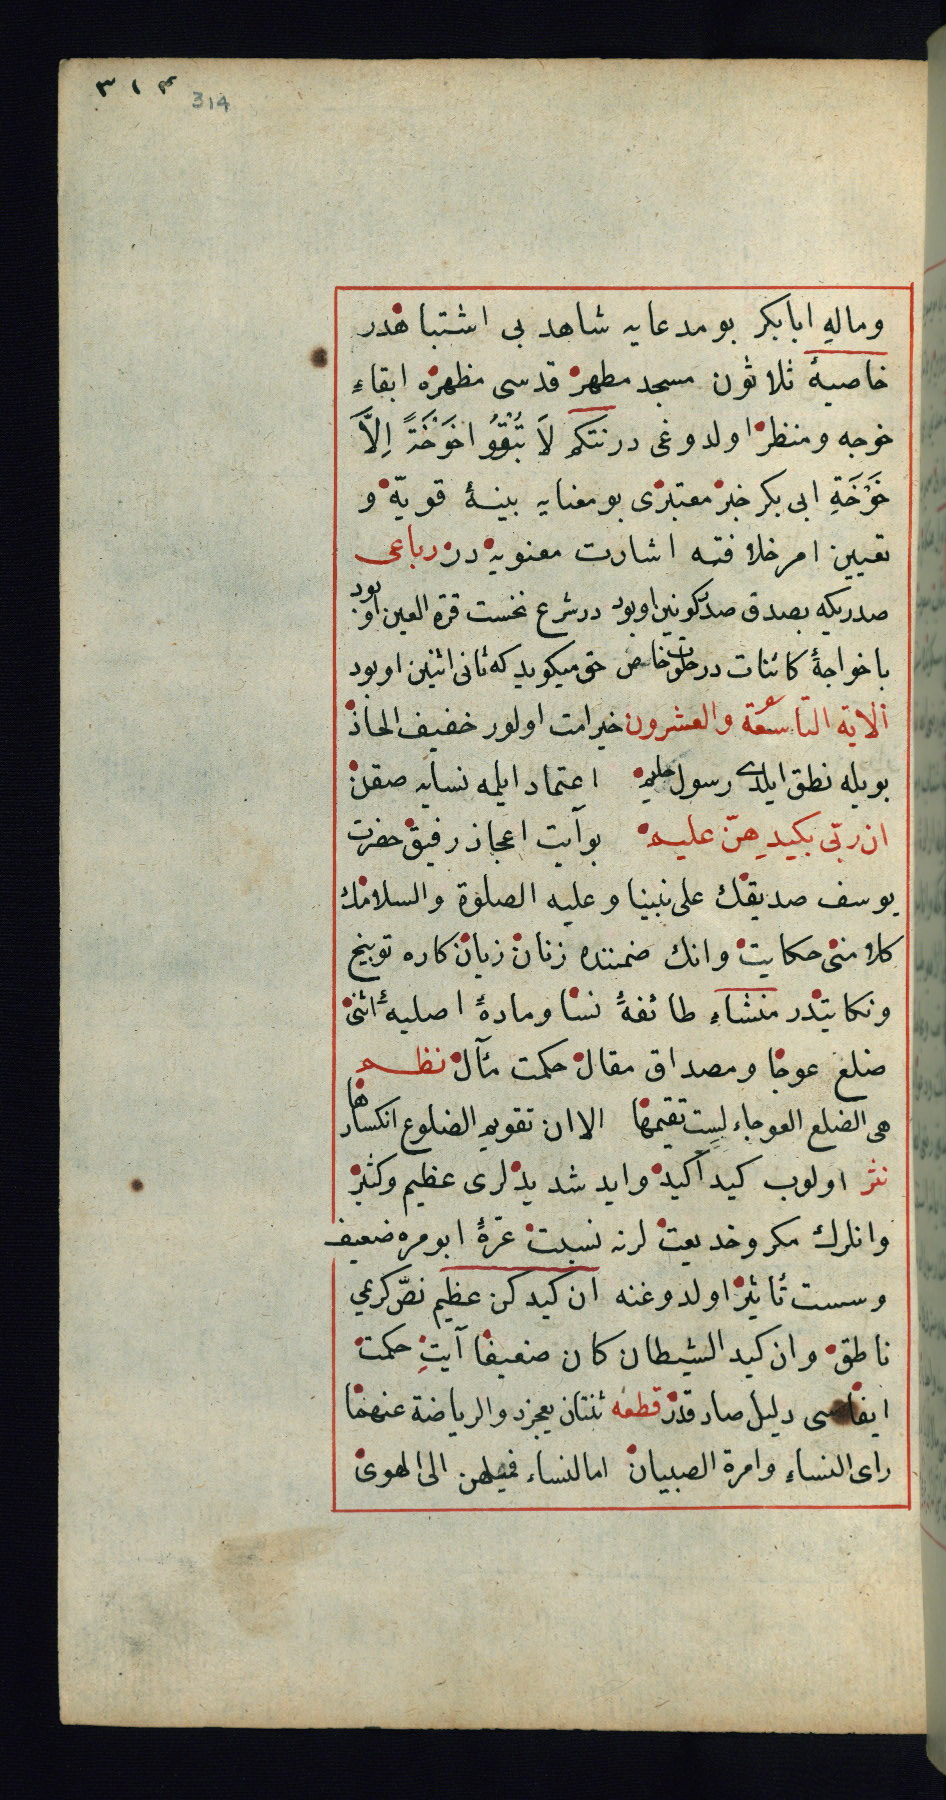 ٣١٤
314
وماليه ابابكر بو مدعايه شاهد بى اشتباهدر
خاصيهٔ ثلاثون مسجد مطهر قدسى مظهره ابقاء
خوجه ومنظر اولدوغى درنتكم لاَ تُبْقُوا خَوْخَةً اِلاَّ
خَوْخَةِ ابى بكر خبر معتبرى بو معنايه بينهٔ قويّه و
تعيين امر خلافته اشارت معنويه در رباعى
صدريكه بصدق صدر كونين او بود در شرع نخست قرة العين او بود
با خواجهٔ كائنات در خلوت خاص حق ميكويد كه ثانى اثنين او بود
الاية التاسعة والعشرون خير امت اولور خفيف الحاذ
بويله نطق ايلدى رسول عليم اعتماد ايلمه نسايه صقن
ان ربّى بكيدِهنّ عليم بو آيت اعجاز رفيق حضرت
يوسف صديقك على نبينا وعليه الصلوة والسلامك
كلامنى حكايت وانك ضمننده زنان زيان كاره توبيخ
ونكايتدر منشاء طائفهٔ نسا ومادهٔ اصليهٔ انثى
ضلع عوجا ومصداق مقال حكمت مآل نظم
هى الضلع العوجاء لست تقيمها الا ان تقويم الضلوع انكسارها
نثر اولوب كيد اكيد وايد شديدلرى عظيم وكثير
وانلرك مكر وخديعتلرنه نسبت غرّهٔ ابو مره ضعيف
وسست تأثير اولدوغنه ان كيدكن عظيم نصّ كريمى
ناطق وان كيد الشيطان كان ضعيفا آيتِ حكمت
ايفاسى دليل صادقدر قطعه ثنتان يعجز ذو الرياضة عنهما
راى النساء وامرة الصبيان اما النساء فميلهن الى الهوى